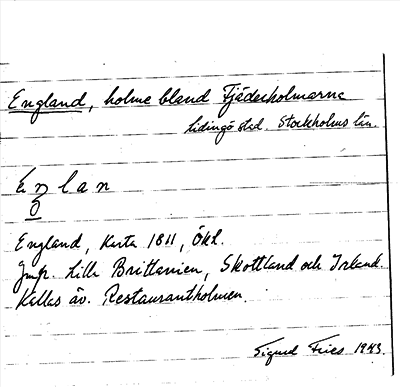 England, holme bland Fjäderholmarna
Lidingö stad. Stockholms län.
Eŋlan
England, Karta 1811, Ökl.
Jmfr. Lilla Brittanien, Skottland och Irland.
Kallas äv. Restaurantholmen.
Sigurd Fries 1943.